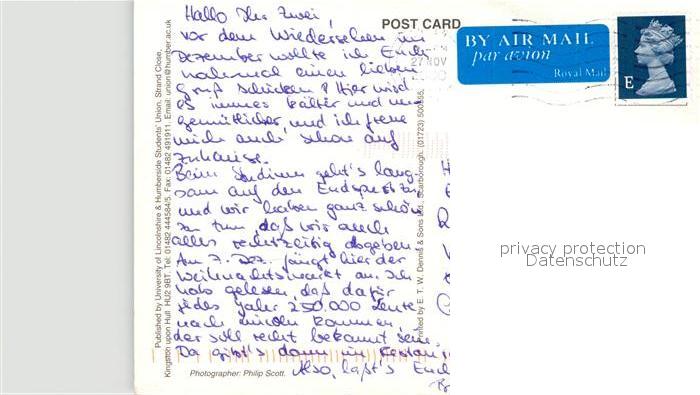 Hallo Ihr zwei,
vor dem Wiedersehen im
Dezember wollte ich Euch
nochmal einen lieben
Gruß schicken! Hier wird
es immer kälter und
gemütlicher, und ich freue
mich auch schon auf
zuhause.
Beim Studium geht's lang-
sam auf den Endspurt zu
und wir haben ganz schön
zu tun, daß wir auch
alles rechtzeitig abgeben.
Am 7. Dez. fängt hier der
Weihnachtsmarkt an. Ich
hab gelesen, daß dafür
jedes Jahr 250.000 Leute
nach kommen,
der soll recht bekannt sein.
Da gibt's dann im
Also, laßt's Euch
POST CARD
27 NOV
BY AIR MAIL
par avion
Royal Mail
E
Published by University of Lincolnshire & Humberside Students' Union, Strand Close,
Kingston upon Hull HU2 9BT. Tel: 01482 444584/5. Fax: 01482 491911. Email: union@humber.ac.uk
Printed by E. T. W. Dennis & Sons Ltd., Scarborough. (01723) 500555.
Photographer: Philip Scott.
privacy protection
Datenschutz